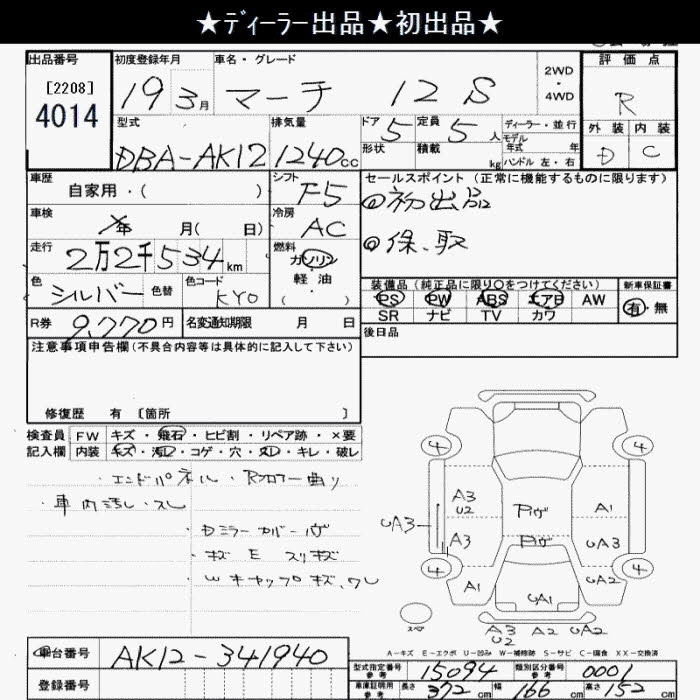 ★ﾃﾞｨｰﾗｰ出品★初出品★
出品番号
[2208]
4014
初度登録年月
19 3月
車名・グレード
マーチ 12S
2WD
・
4WD
評価点
R
外装 内装
D C
型式
DBA-AK12
排気量
1240cc
ドア 5
定員 5人
形状
積載 kg
ディーラー・並行
モデル年式 年
ハンドル 左・右
車歴
自家用・( )
シフト
F5
車検
年 月( 日)
冷房
AC
走行
2万2千534km
燃料
ガソリン
軽油
( ・ )
色
シルバー
色替
色コード
KY0
セールスポイント (正常に機能するものに限ります)
◎初出品
◎保、取
装備品 (純正品に限り○をつけてください)
PS PW ABS エアB AW
SR ナビ TV カワ
新車保証書
有・無
R券 9,770円
名変通知期限 月 日
後日品
注意事項申告欄(不具合内容等は具体的に記入して下さい)
修復歴 有 〔箇所 〕
検査員
記入欄
FW キズ・飛石・ヒビ割・リペア跡・×要
内装 キズ・汚れ・コゲ・穴・スレ・キレ・破レ
・エンドパネル・Rフロアー曲り
・車内汚レ・スレ
・Dミラーカバーハゲ
・キズ E スリキズ
・Wキャップキズ、ワレ
4
4
4
4
A3
U2
A3
UA3
Pハゲ
Pハゲ
A1
UA3
UA2
A1
UA1
スペア
A3
U2
A2
UA2
A-キズ E-エクボ U-凹み W-補修跡 S-サビ C-腐食 XX-交換済
車台番号
AK12-341940
登録番号
型式指定番号
参考
15094
類別区分番号
参考
0001
車庫証明用
参考
長さ 372cm
幅 166cm
高さ 152cm